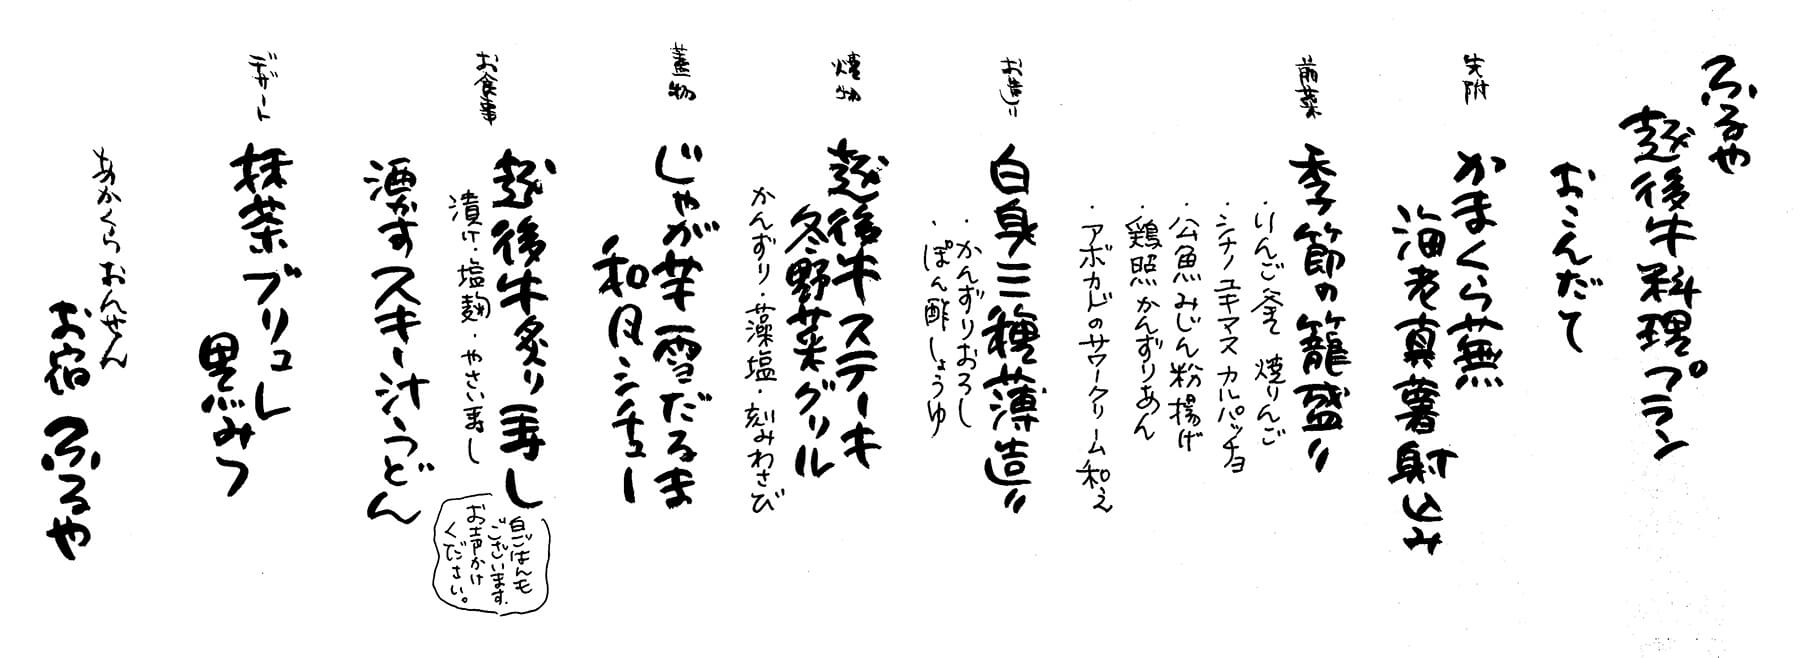 ふるや
越後牛料理プラン
おこんだて
先附
かまくら蕪
海老真薯射込み
前菜
季節の籠盛り
・りんご釜 焼りんご
・シナノユキマス カルパッチョ
・公魚みじん粉揚げ
・鶏照かんずりあん
・アボカドのサワークリーム和え
お造り
白身三種薄造り
・かんずりおろし
・ぽん酢しょうゆ
焼物
越後牛ステーキ
冬野菜グリル
かんずり・藻塩・刻みわさび
蓋物
じゃが芋雪だるま
和風シチュー
お食事
越後牛炙り寿し
漬け・塩麹・やさい寿し
白ごはんも
ございます。
お声かけ
ください。
酒かすスキー汁うどん
デザート
抹茶ブリュレ
黒みつ
あかくらおんせん
お宿 ふるや